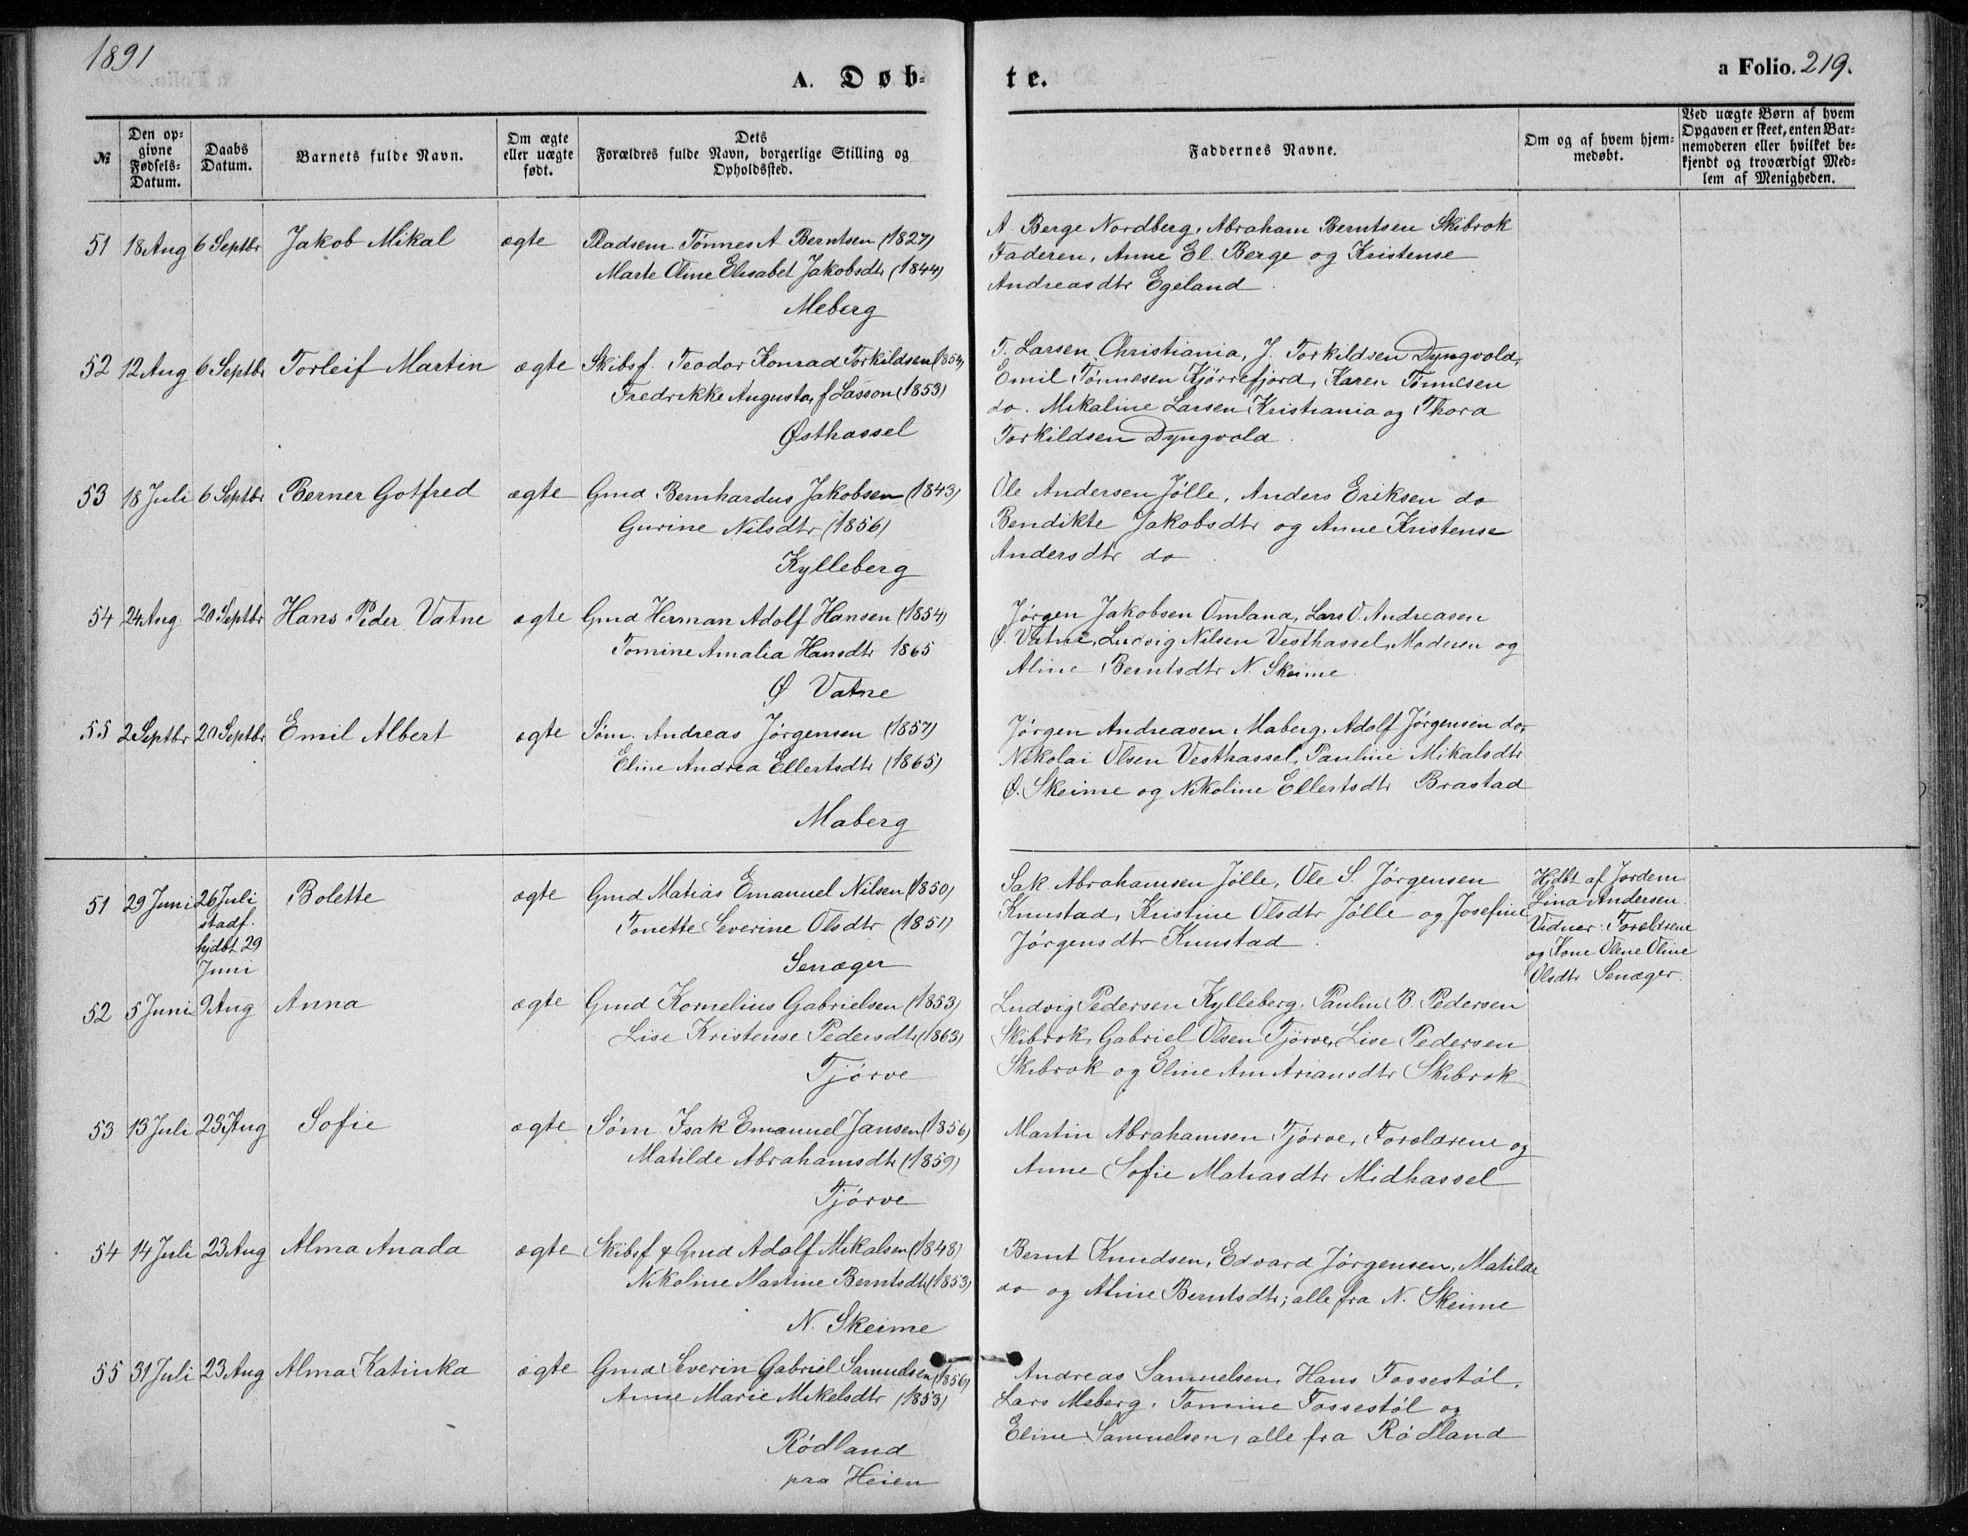 1891
A. Døb-
te.
a Folio. 219.
№
Den op-
givne
Fødsels-
Datum.
Daabs
Datum.
Barnets fulde Navn.
Om ægte
eller uægte
født.
Dets
Forældres fulde Navn, borgerlige Stilling og
Opholdssted.
Faddernes Navne.
Om og af hvem hjem-
medøbt.
Ved uægte Børn af hvem
Opgaven er skeet, enten Bar-
nemoderen eller hvilket be-
kjendt og troværdigt Med-
lem af Menigheden.
51 18 Aug 6 Septbr Jakob Mikal ægte Pladsem. Tønnes A. Berntsen (1827)
Marte Oline Elisabet Jakobsdtr (1844)
Meberg
A. Berge Nordberg, Abraham Berntsen Skibrok
Faderen, Anne El. Berge og Kristense
Andreasdtr Egeland.
52 12 Aug 6 Septbr Torleif Martin ægte Skibsf. Teodor Konrad Torkildsen (1854)
Fredrikke Augusta, f Lasson (1853)
Østhassel
T. Larsen, Christiania, J. Torkildsen Dyngvold,
Emil Tønnesen Kjørrefjord, Karen Tønnesen
do. Mikaline Larsen, Kristiania og Thora
Torkildsen Dyngvold.
53 18 Juli 6 Septbr Berner Gotfred ægte Gmd Bernhardus Jakobsen (1843)
Gurine Nilsdtr (1856)
Kylleberg
Ole Andersen Jølle, Anders Eriksen do
Bendikte Jakobsdtr og Anne Kristense
Andersdtr do.
54 24 Aug 20 Septbr Hans Peder Vatne ægte Gmd Herman Adolf Hansen (1854)
Tomine Amalia Hansdtr 1865
Ø Vatne
Jørgen Jakobsen Omland, Lars O. Andreasen
Ø. Vatne, Ludvig Nilsen Vesthassel, Moderen og
Aline Berntsdtr N. Skeime.
55 2 Septbr 20 Septbr Emil Albert ægte Søm. Andreas Jørgensen (1857)
Eline Andrea Ellertsdtr (1865)
Maberg
Jørgen Andreasen Maberg, Adolf Jørgensen do,
Nikolai Olsen Vesthassel, Pauline Mikalsdtr
Ø. Skeime og Nikoline Ellertsdtr Brastad
51 29 Juni 26 Juli Bolette ægte Gmd Matias Emanuel Nilsen (1850)
stadf.
hjdbt 29
Juni
Tonette Severine Olsdtr (1851)
Senæger
Sak Abrahamsen Jølle, Ole S. Jørgensen
Knustad, Kristine Olsdtr Jølle og Josefine
Jørgensdtr Knustad.
Hjdbt af Jordem.
Lina Andersen.
Vidner: Forældrene
og Kone Olene Oline
Olsdtr Senæger.
52 5 Juni 9 Aug Anna ægte Gmd Kornelius Gabrielsen (1853)
Lise Kristense Pedersdtr (1863)
Tjørve
Ludvig Pedersen Kylleberg, Paulin B. Pedersen
Skibrok, Gabriel Olsen Tjørve, Lise Pedersen
Skibrok og Eline Ann Ariansdtr Skibrok
53 13 Juli 23 Aug Sofie ægte Søm. Isak Emanuel Jansen (1856)
Matilde Abrahamsdtr (1859)
Tjørve
Martin Abrahamsen Tjørve, Forældrene og
Anne Sofie Matiasdtr Midhassel
54 14 Juli 23 Aug Alma Anada ægte Skibsf & Gmd Adolf Mikalsen (1848)
Nikoline Martine Berntsdtr (1853)
N. Skeime
Bernt Knudsen, Edvard Jørgensen, Matilde
do og Aline Berntsdtr; alle fra N. Skeime
55 31 Juli 23 Aug Alma Katinka ægte Gmd Severin Gabriel Samuelsen (1856)
Anne Marie Mikelsdtr (1853)
Rødland
paa Heien
Andreas Samuelsen, Hans Fossestøl,
Lars Meberg, Tomine Fossestøl og
Eline Samuelsen, alle fra Rødland